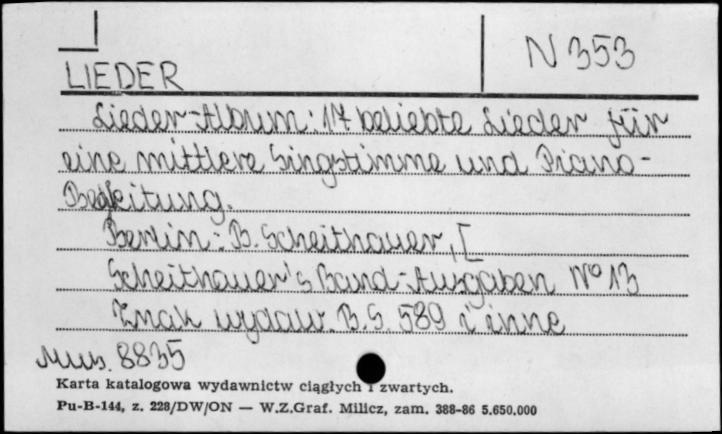 N 353
LIEDER
Lieder-Album: 17 beliebte Lieder für
eine mittlere Singstimme und Piano-
Begleitung.
Berlin: B. Scheithauer, [
Scheithauer's Band-Ausgaben No 13
Znak wydaw. B.S. 589 i inne
Mus. 8835
Karta katalogowa wydawnictw ciągłych i zwartych.
Pu-B-144, z. 228/DW/ON — W.Z.Graf. Milicz, zam. 388-86 5.650.000